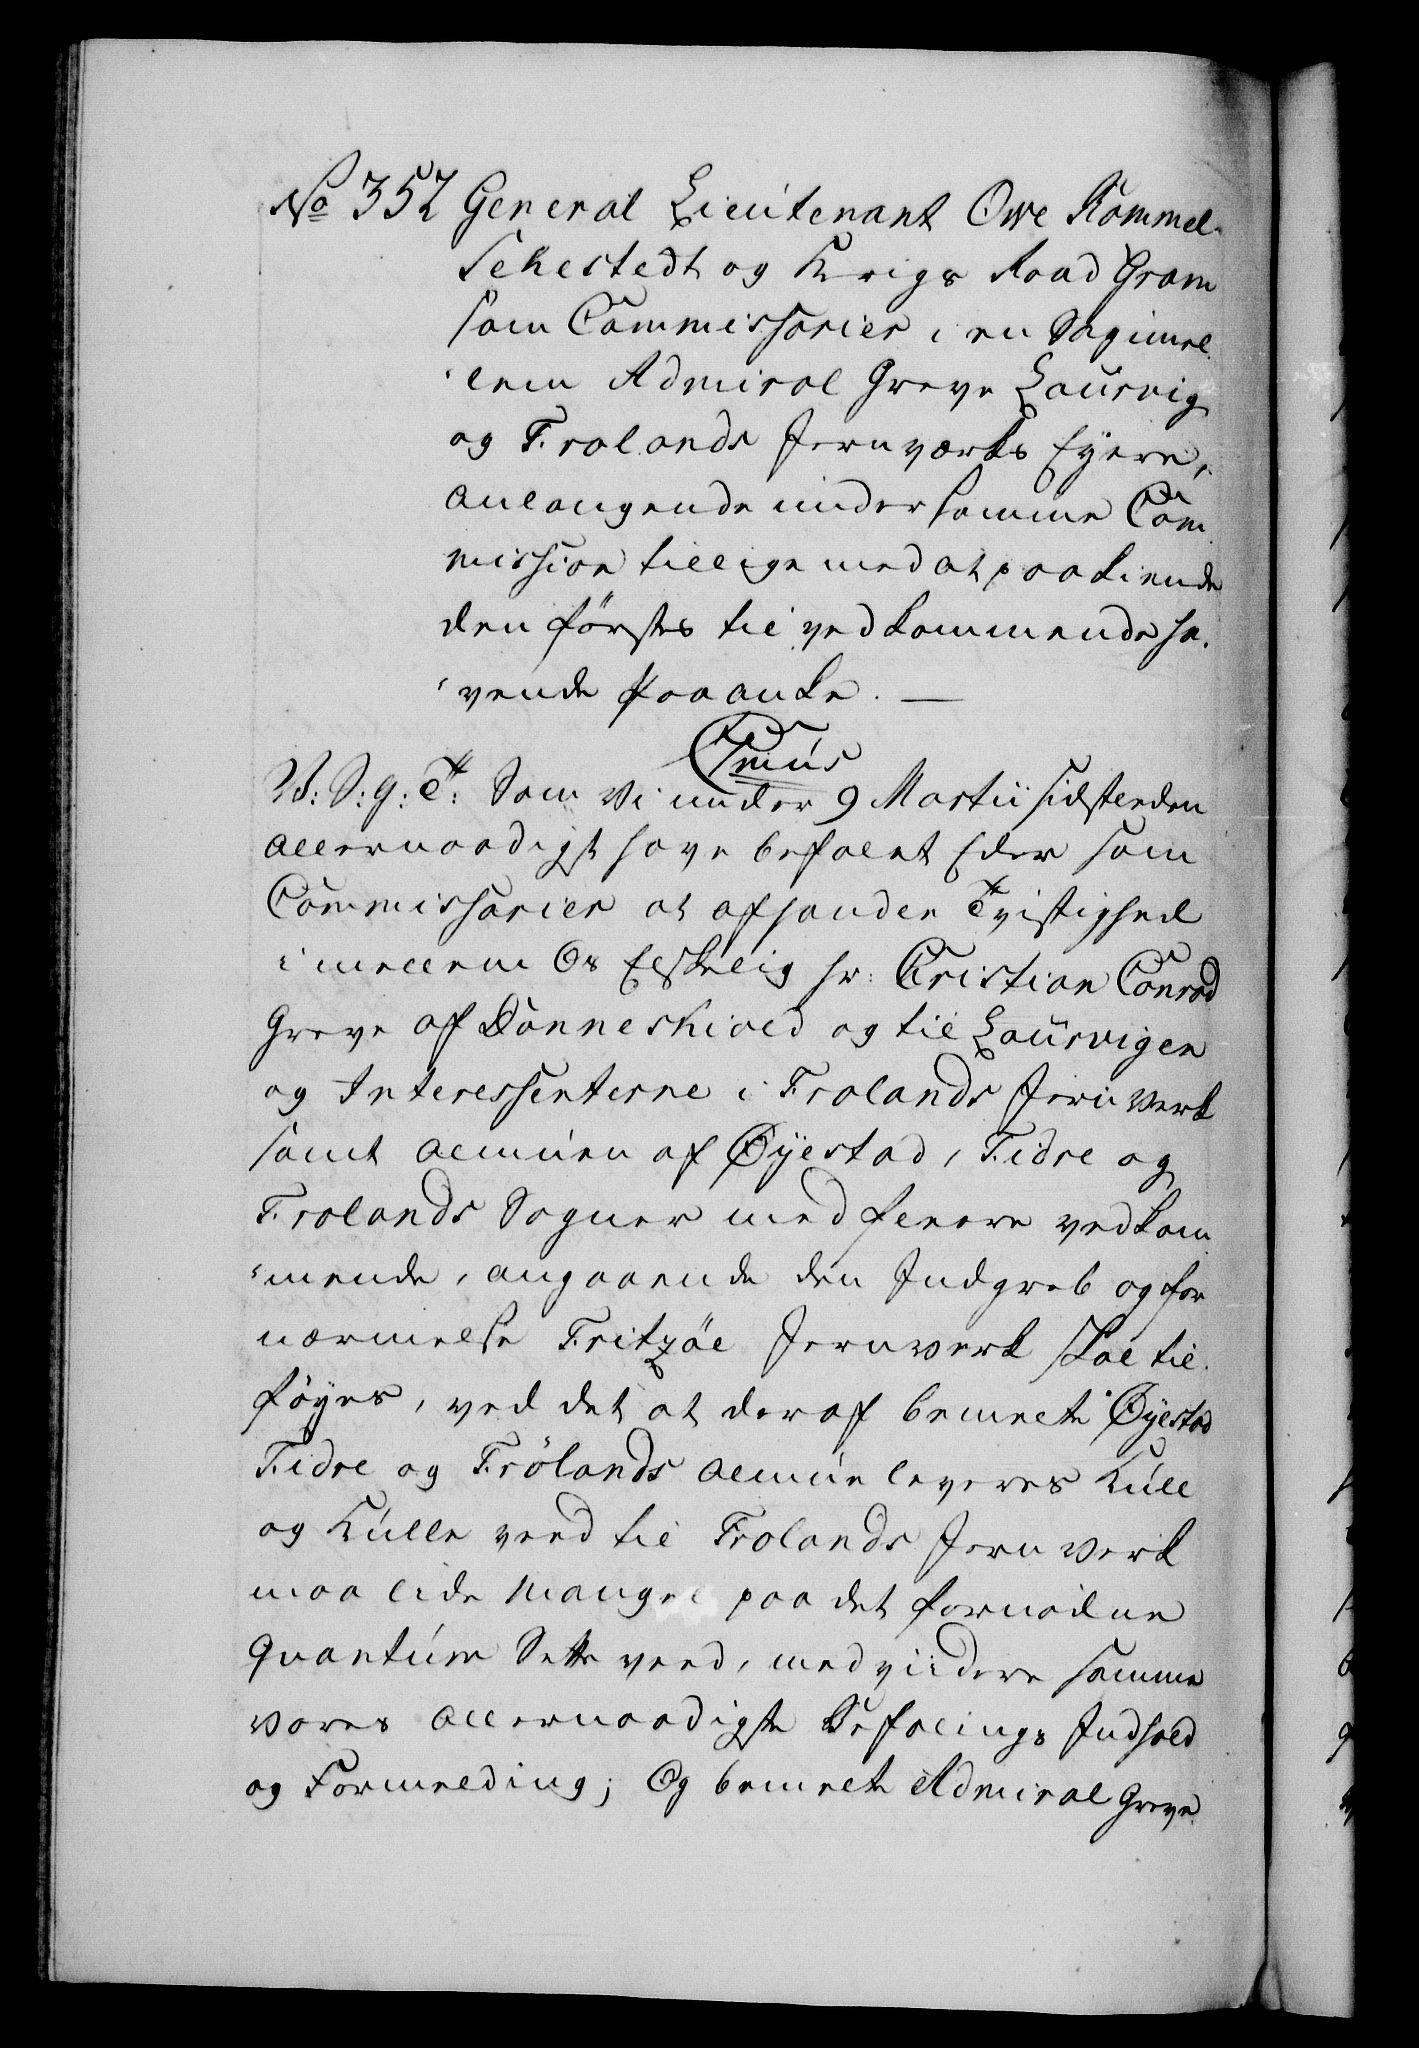 No 352 General Lieutenant Owe Rommel
Sehestedt og Krigs Raad Gram
som Commissarier i en Sag imel
lem Admiral Greve Laurvig
og Frolands Jernværks Eyere,
anlangende under samme Com
mission tillige med at paakiende
den førstes til vedkommende ha
vende Paaanke. —
Cmus
V: S: g: T: Som Vi under 9 Martii sidstleden
allernaadigst have befalet Eder som
Commissarier at afhandle Tvistighed
imellem Os Elskelig hr: Cristian Conrad
Greve aff Danneskiold og til Laurvigen
og Interessenterne i Frolands Jernverk
samt Almuen af Øyestad, Fidre og
Frolands Sogner med fleere vedkom
mende, angaaende den Indgreb og for
nærmelse Fritzöe Jernverk skal til
føyes, ved det at deraf bemelte Øyestad
Fidre og Frölands Almue leveres Kull
og Kulle veed til Frolands Jernverk
maa lide Mangel paa det fornødne
Quantum Sette veed, med viidere samme
vores Allernaadigste Befalings Indhold
og Formelding; Og bemelte Admiral Greve